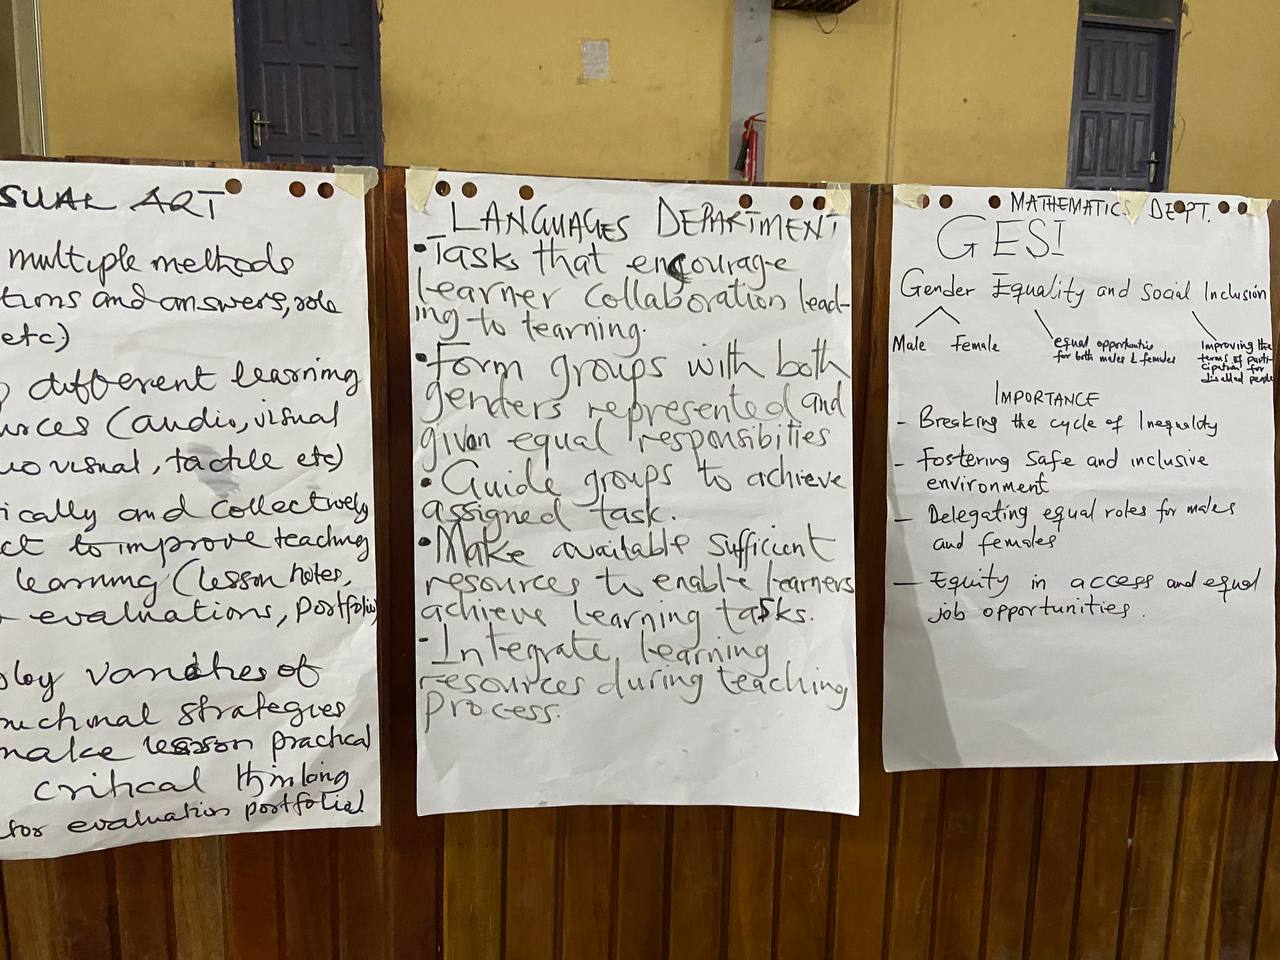 SUAL ART
multiple methods
tions and answers, role
etc)
different learning
urces (audio, visual
uo visual, tactile etc)
ically and collectively
ct to improve teaching
learning (lesson notes,
evaluations, portfolio
loy varieties of
uctional strategies
make lesson practical
critical thinking
for evaluation portfolio.
LANGUAGES DEPARTMENT
• Tasks that encourage
learner collaboration lead-
ing to tearning.
• Form groups with both
genders represented and
given equal responsibities
• Guide groups to achieve
assigned task.
• Make available sufficient
resources to enable learners
achieve learning tasks.
- Integrate learning
resources during teaching
process.
MATHEMATICS DEPT.
GESI
Gender Equality and Social Inclusion
Male Female
equal opportunities
for both males & females
Improving the
terms of parti-
cipation for
disabled people
IMPORTANCE
- Breaking the cycle of Inequality
- Fostering safe and inclusive
environment
- Delegating equal roles for males
and females
- Equity in access and equal
job opportunities.